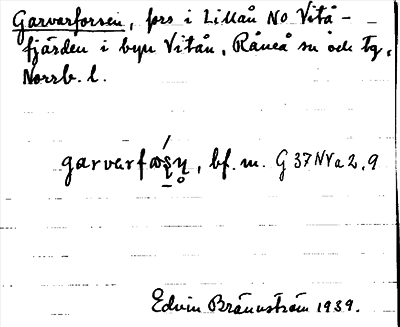 Garvarforsen, fors i Lillån NO Vitå-
fjärden i byn Vitån, Råneå sn och tg,
Norrb. l.
garvarfǿʂɳ̥, bf. m. G 37 NVa2,9
Edvin Brännström 1939.